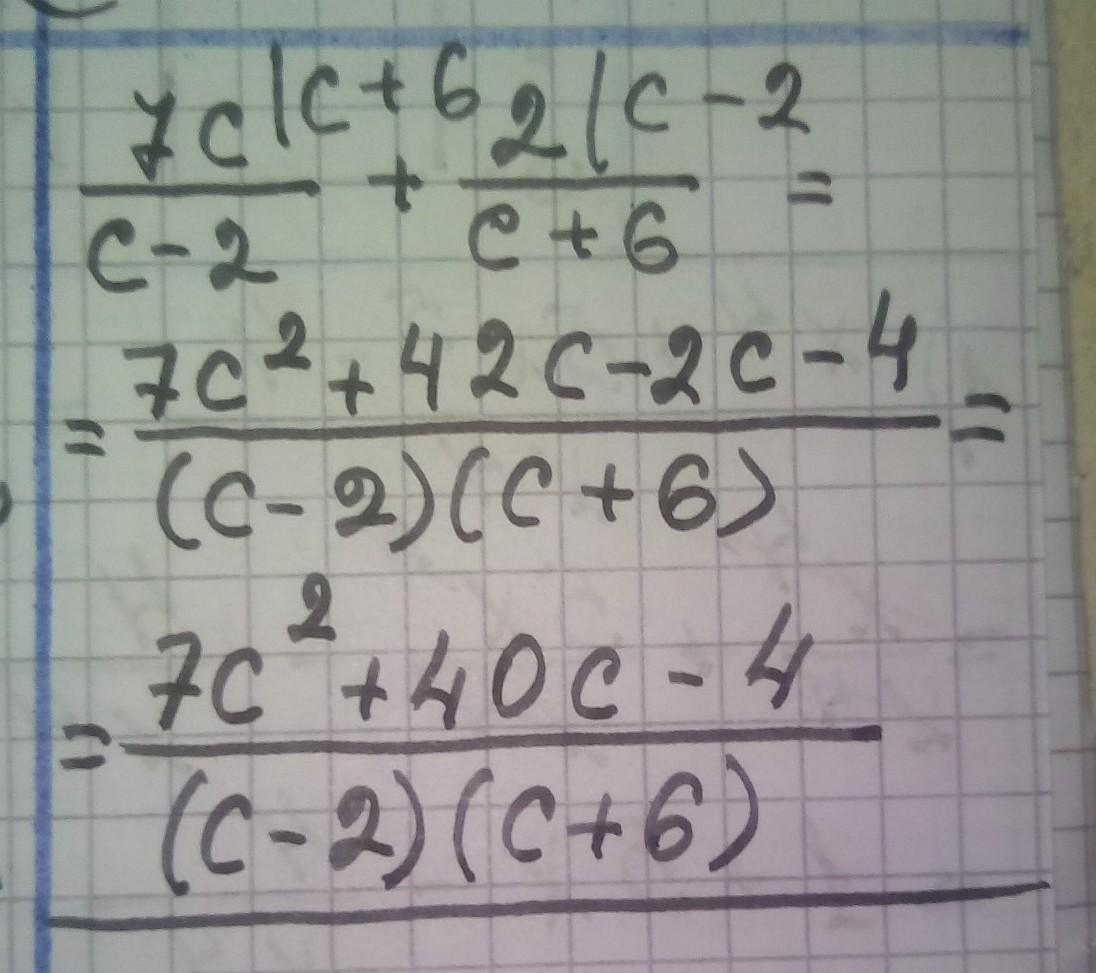 7c|c+6 2|c-2
— + — =
c-2 c+6
7c²+42c-2c-4
= — =
(c-2)(c+6)
7c²+40c-4
= —
(c-2)(c+6)